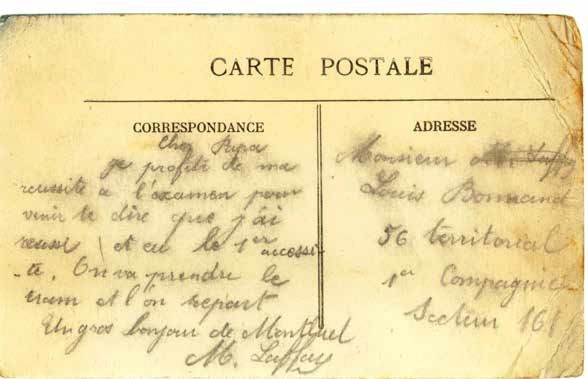 CARTE POSTALE
CORRESPONDANCE
Cher Papa
je profite de ma
reussite a l'examen pour
venir te dire que j'ai
reussi et eu le 1er accessi-
-te. On va prendre le
tram et l'on repart
Un gros bonjour de Montluel
M. Laffay
ADRESSE
Monsieur
Louis Bonnand
56 territorial
1er Compagnie
Secteur 161